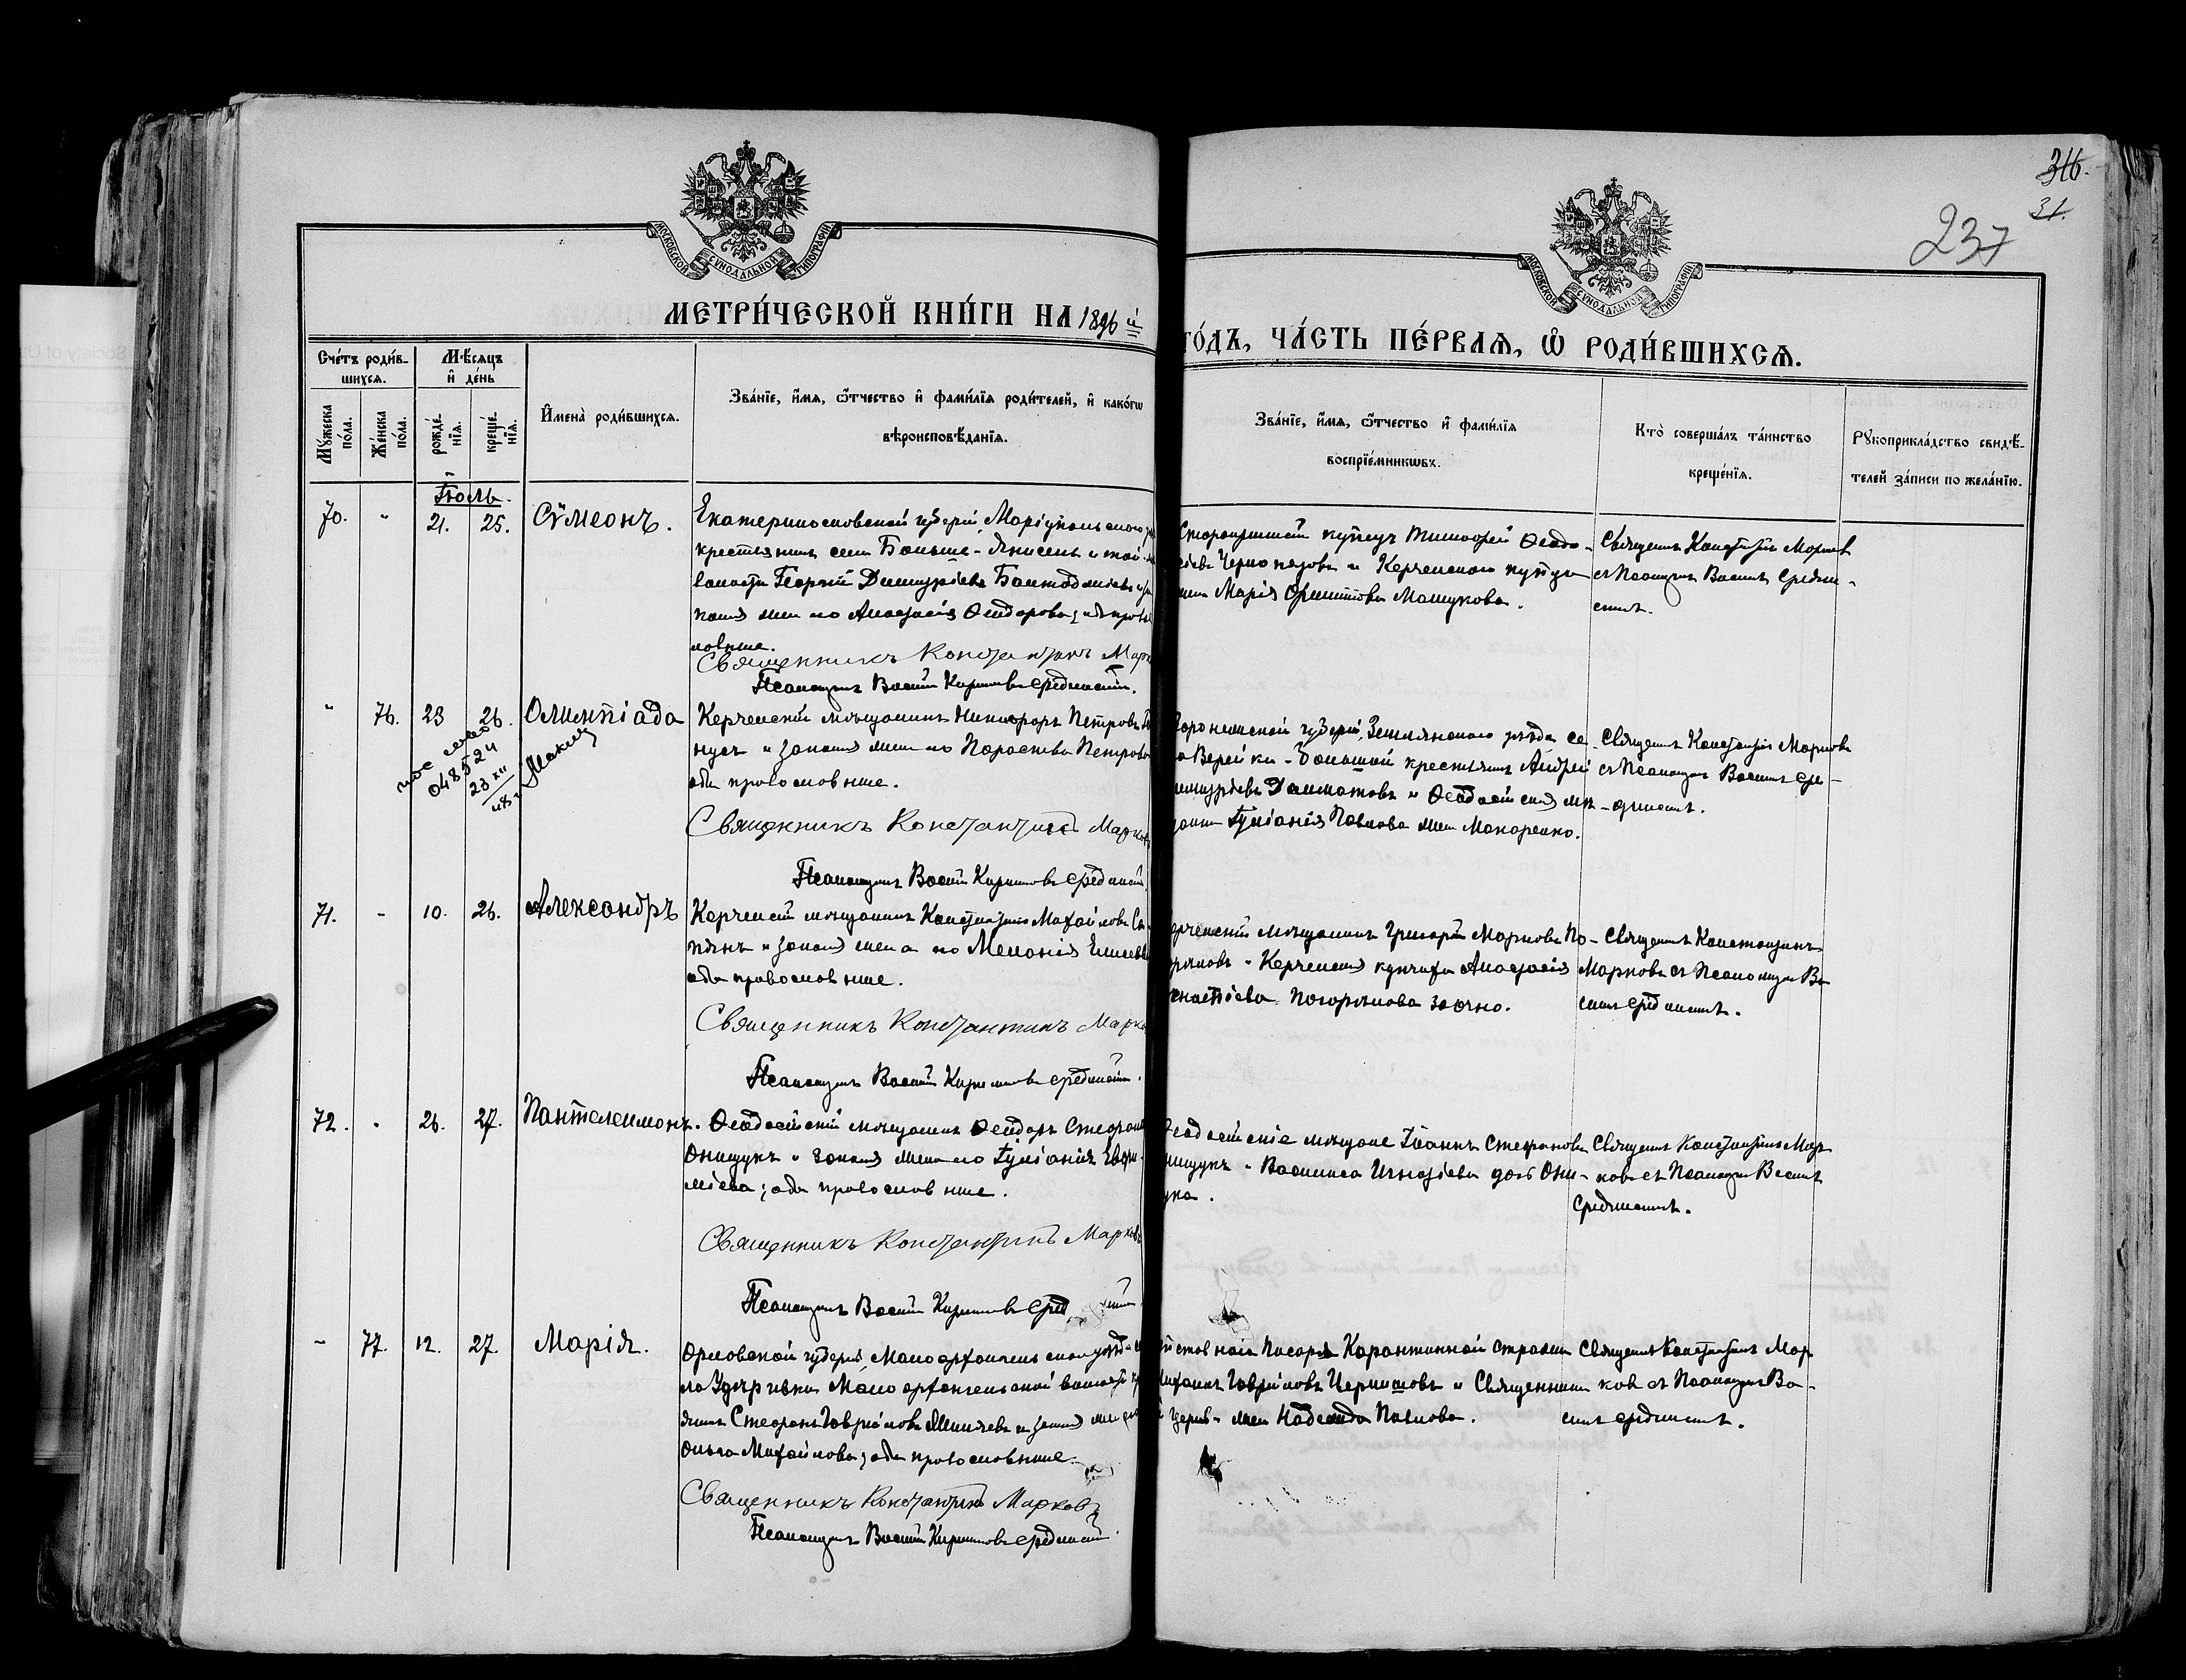 316.
31.
237
МОСКОВСКОЙ СѴНОДАЛЬНОЙ ТИПОГРАФІИ
МОСКОВСКОЙ СѴНОДАЛЬНОЙ ТИПОГРАФІИ
МЕТРИ́ЧЕСКОЙ КНИ́ГИ НА 1896 й
ГО́ДЪ, ЧА́СТЬ ПЕ́РВАѦ, Ѡ РОДИ́ВШИХСѦ.
Сче́тъ роди́в-
шихсѧ.
Мѣ́сѧцъ
и҆ де́нь
Мꙋ́жеска по́ла.
Же́нска по́ла.
рожде́-нїѧ.
креще́-нїѧ.
И҆мена̀ роди́вшихсѧ.
Зва́нїе, и҆́мѧ, ѻ҆́тчество и҆ фами́лїѧ роди́телей, и҆ како́гѡ
вѣроисповѣ́данїѧ.
Зва́нїе, и҆́мѧ, ѻ҆́тчество и҆ фами́лїѧ
воспрїе́мникѡвъ.
Кто̀ соверша́лъ та́инство
креще́нїѧ.
Рꙋкоприкла́дство свидѣ́-
телей за́писи по жела́нїю.
Іюль.
70. " 21. 25. Сѷмеонъ.
Екатеринославской губерніи, Маріупольскаго
крестьянинъ села Больше-Янисель и той-же
волости Георгій Димитріевъ
жена его Анастасія Ѳеодорова; оба право
славные.
Священникъ Константинъ Марк
Псаломщикъ Василій Кирилловъ Срединскій.
купецъ Тимоѳей Ѳеодо-
сіевъ и Керченскаго купца
жена Марія Филиппова Машукова.
Священникъ Константинъ Марков
съ Псаломщик Василіемъ Средин-
скимъ.
" 76. 23 26. Олимпіада
04852ч
23 xii
48 г
Керченскій мѣщанинъ Никифоръ Петровъ
и законная жена его Параскева Петрова
оба православные.
Священникъ Константинъ Марков
Псаломщикъ Василій Кирилловъ Срединскій
Воронежской губерніи, Землянскаго уѣзда се
ла Верейки-Большой крестьянинъ Андрей
Димитріевъ Долматовъ и Ѳеодосійская мѣ-
щанка Іуліанія Павлова жена Макаренко.
Священникъ Константинъ Марковъ
съ Псаломщик Василіемъ Сре-
динскимъ.
71. " 10. 26. Александръ
Керченскій мѣщанинъ Константинъ Михайловъ
и законная жена его Меланія Елисеева
оба православные.
Священникъ Константинъ Марков
Псаломщикъ Василій Кирилловъ Срединскій.
Керченскій мѣщанинъ Григорій Марковъ По-
и Керченская купчиха Анастасія
Игнатіева заочно.
Священникъ Константинъ
Марковъ съ Псаломщик Ва
силіемъ Срединскимъ.
72. " 26. 27. Пантелеимонъ.
Ѳеодосійскій мѣщанинъ Ѳеодоръ Стефановъ
Онищукъ и законная жена его Іуліанія Евѳи-
міева; оба православные.
Священникъ Константинъ Марковъ
Псаломщикъ Василій Кирилловъ Сред
Ѳеодосійскіе мѣщане Іоаннъ Стефановъ
Онищукъ и Василиса Игнатіева дочь Они-
щука.
Священникъ Константинъ Мар
ковъ съ Псаломщик Василіемъ
Срединскимъ.
" 77. 12. 27. Марія.
Орловской губерніи, Малоархангельскаго уѣзда се
ла Малоархангельской волости кр
янинъ Стефанъ Гавріиловъ и законная жена его
Ольга Михайлова; оба православные.
Священникъ Константинъ Марковъ
Псаломщикъ Василій Кирилловъ Срединскій
писарь Карантинной стражи
Михаилъ Гавріиловъ и Священника
церкви жена Надежда Павлова.
Священникъ Константинъ Мар
ковъ съ Псаломщик Ва-
силіемъ Срединскимъ.